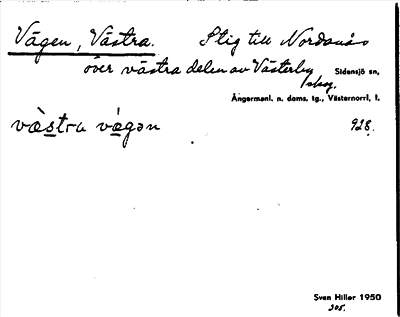 Vägen, Västra. Stig till Nordanås
över västra delen av Västerby
skog. Sidensjö sn,
Ångermanl. n. doms. tg., Västernorrl. l.
væ̀stra vǽgən 928.
Sven Hiller 1950
305.